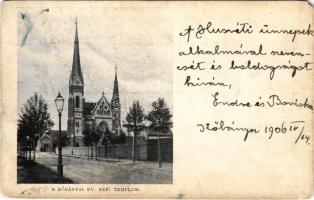 A Husvéti ünnepek
alkalmával szeren-
csét és boldogságot
kiván,
Endre és Boriska
Kőbánya 1906 IV/14.
A KŐBÁNYAI EV. REF. TEMPLOM.